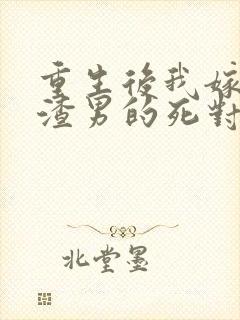 重生後我嫁
渣男的死對
北堂墨